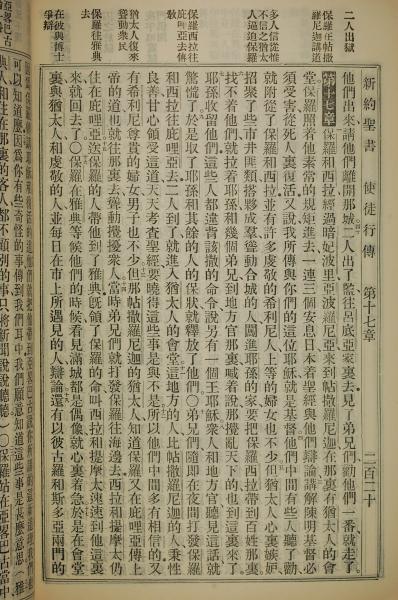 新約聖書　使徒行傳　第十七章　二百二十
二人出獄
保羅在帖撒羅尼迦講道
多人信從惟不信之猶太人逼迫保羅
保羅西拉往庇哩亞去傳道
猶太人復來聳動衆民
保羅往雅典去
在彼與博士爭辯
他們出來請他們離開那城二人出了監往呂底亞家裏去見了弟兄們勸他們一番就走了
第十七章保羅和西拉經過暗妃波里亞波羅尼亞來到帖撒羅尼迦在那裏有猶太人的會
堂保羅照着他素常的規矩進去一連三個安息日本着聖經與他們辯論講解陳明基督必
須受害從死人裏復活又說我所傳與你們的這位耶穌就是基督他們中間有些人聽了勸
就附從了保羅和西拉並有許多虔敬的希利尼人上等的婦女也不少但猶太人心裏嫉妒
招聚了些市井匪類搭夥成羣聳動合城的人闖進耶孫的家要把保羅西拉帶到百姓那裏
找不着他們就拉着耶孫和幾個弟兄到地方官那裏喊着說那攪亂天下的也到這裏來了
耶孫收留他們這些人都違背該撒的命令說另有一個王耶穌衆人和地方官聽見這話就
驚慌了於是取了耶孫和其餘的人的保狀就釋放了他們〇弟兄們隨即在夜間打發保羅
和西拉往庇哩亞去二人到了就進入猶太人的會堂這地方的人比帖撒羅尼迦的人秉性
良善甘心領受這道天天考查聖經要曉得這些事是與不是所以他們中間多有相信的又
有希利尼尊貴的婦女男子也不少但那帖撒羅尼迦的猶太人知道保羅又在庇哩亞傳上
帝的道也就往那裏去聳動攪擾衆人當時弟兄們就打發保羅往海邊去西拉和提摩太仍
住在庇哩亞送保羅的人帶他到了雅典旣領了保羅的命叫西拉和提摩太速速到他這裏
來就回去了〇保羅在雅典等候他們的時候看見滿城都是偶像就心裏着急於是在會堂
裏與猶太人和虔敬的人並每日在市上所遇見的人辯論還有以彼古羅和斯多亞兩門的
可以知道麽因爲你有些奇怪的事傳到我們耳中我們願意知道這些事是甚麽意思(雅
典人和住在那裏的客人都不顧別的事只將新聞說說聽聽)〇保羅站在亞略巴古當中